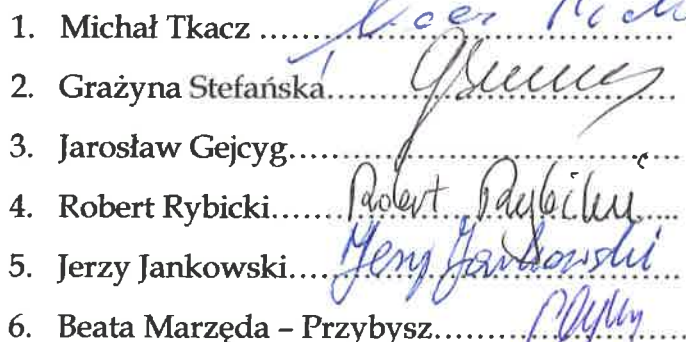 1. Michał Tkacz ..........
2. Grażyna Stefańska..........
3. Jarosław Gejcyg..........
4. Robert Rybicki...... Robert Rybicki
5. Jerzy Jankowski.... Jerzy Jankowski
6. Beata Marzęda – Przybysz..........